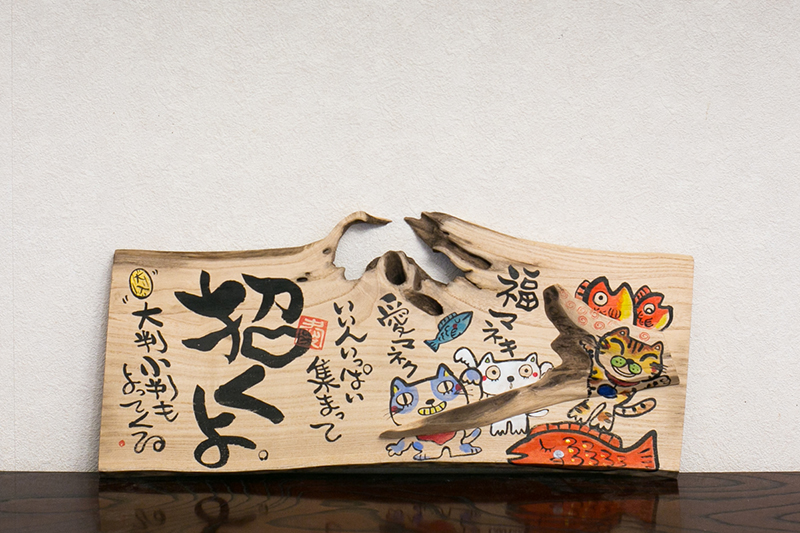 福マネキ
愛マネク
いいんいっぱい
集まって
招くよ。
"大判小判も
よってくる"